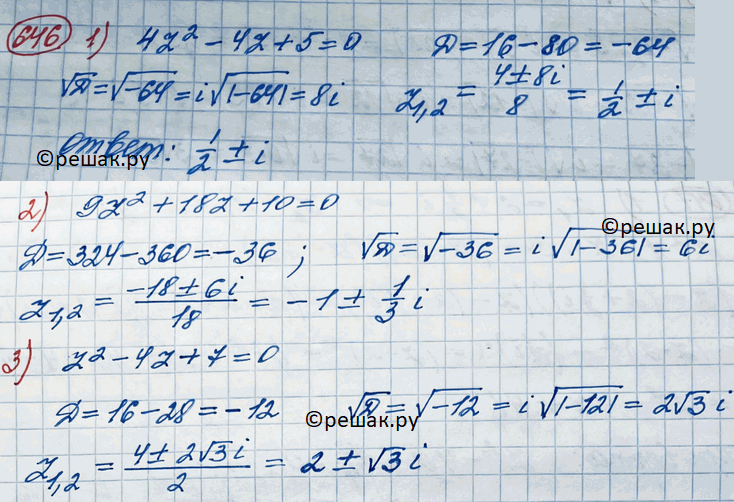 646 1) 4z² − 4z + 5 = 0 D = 16 − 80 = −64
√D = √−64 = i√|−64| = 8i z₁,₂ = (4 ± 8i)/8 = 1/2 ± i
Ответ: 1/2 ± i
©решак.ру
2) 9z² + 18z + 10 = 0
©решак.ру
D = 324 − 360 = −36 ; √D = √−36 = i√|−36| = 6i
z₁,₂ = (−18 ± 6i)/18 = −1 ± 1/3 i
3) z² − 4z + 7 = 0
D = 16 − 28 = −12 √D = √−12 = i√|−12| = 2√3 i
©решак.ру
z₁,₂ = (4 ± 2√3 i)/2 = 2 ± √3 i